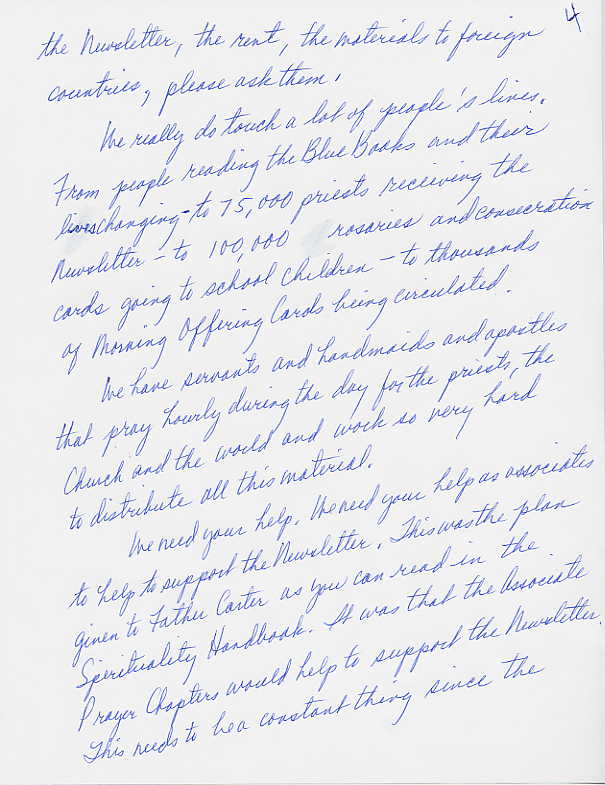 4
the Newsletter, the rent, the materials to foreign
countries, please ask them.
We really do touch a lot of people's lives.
From people reading the Blue Books and their
lives changing - to 75,000 priests receiving the
Newsletter - to 100,000 rosaries and consecration
cards going to school children - to thousands
of Morning Offering Cards being circulated.
We have servants and handmaids and apostles
that pray hourly during the day for the priests, the
Church and the world and work so very hard
to distribute all this material.
We need your help. We need your help as associates
to help to support the Newsletter. This was the plan
given to Father Carter as you can read in the
Spirituality Handbook. It was that the Associate
Prayer Chapters would help to support the Newsletter.
This needs to be a constant thing since the